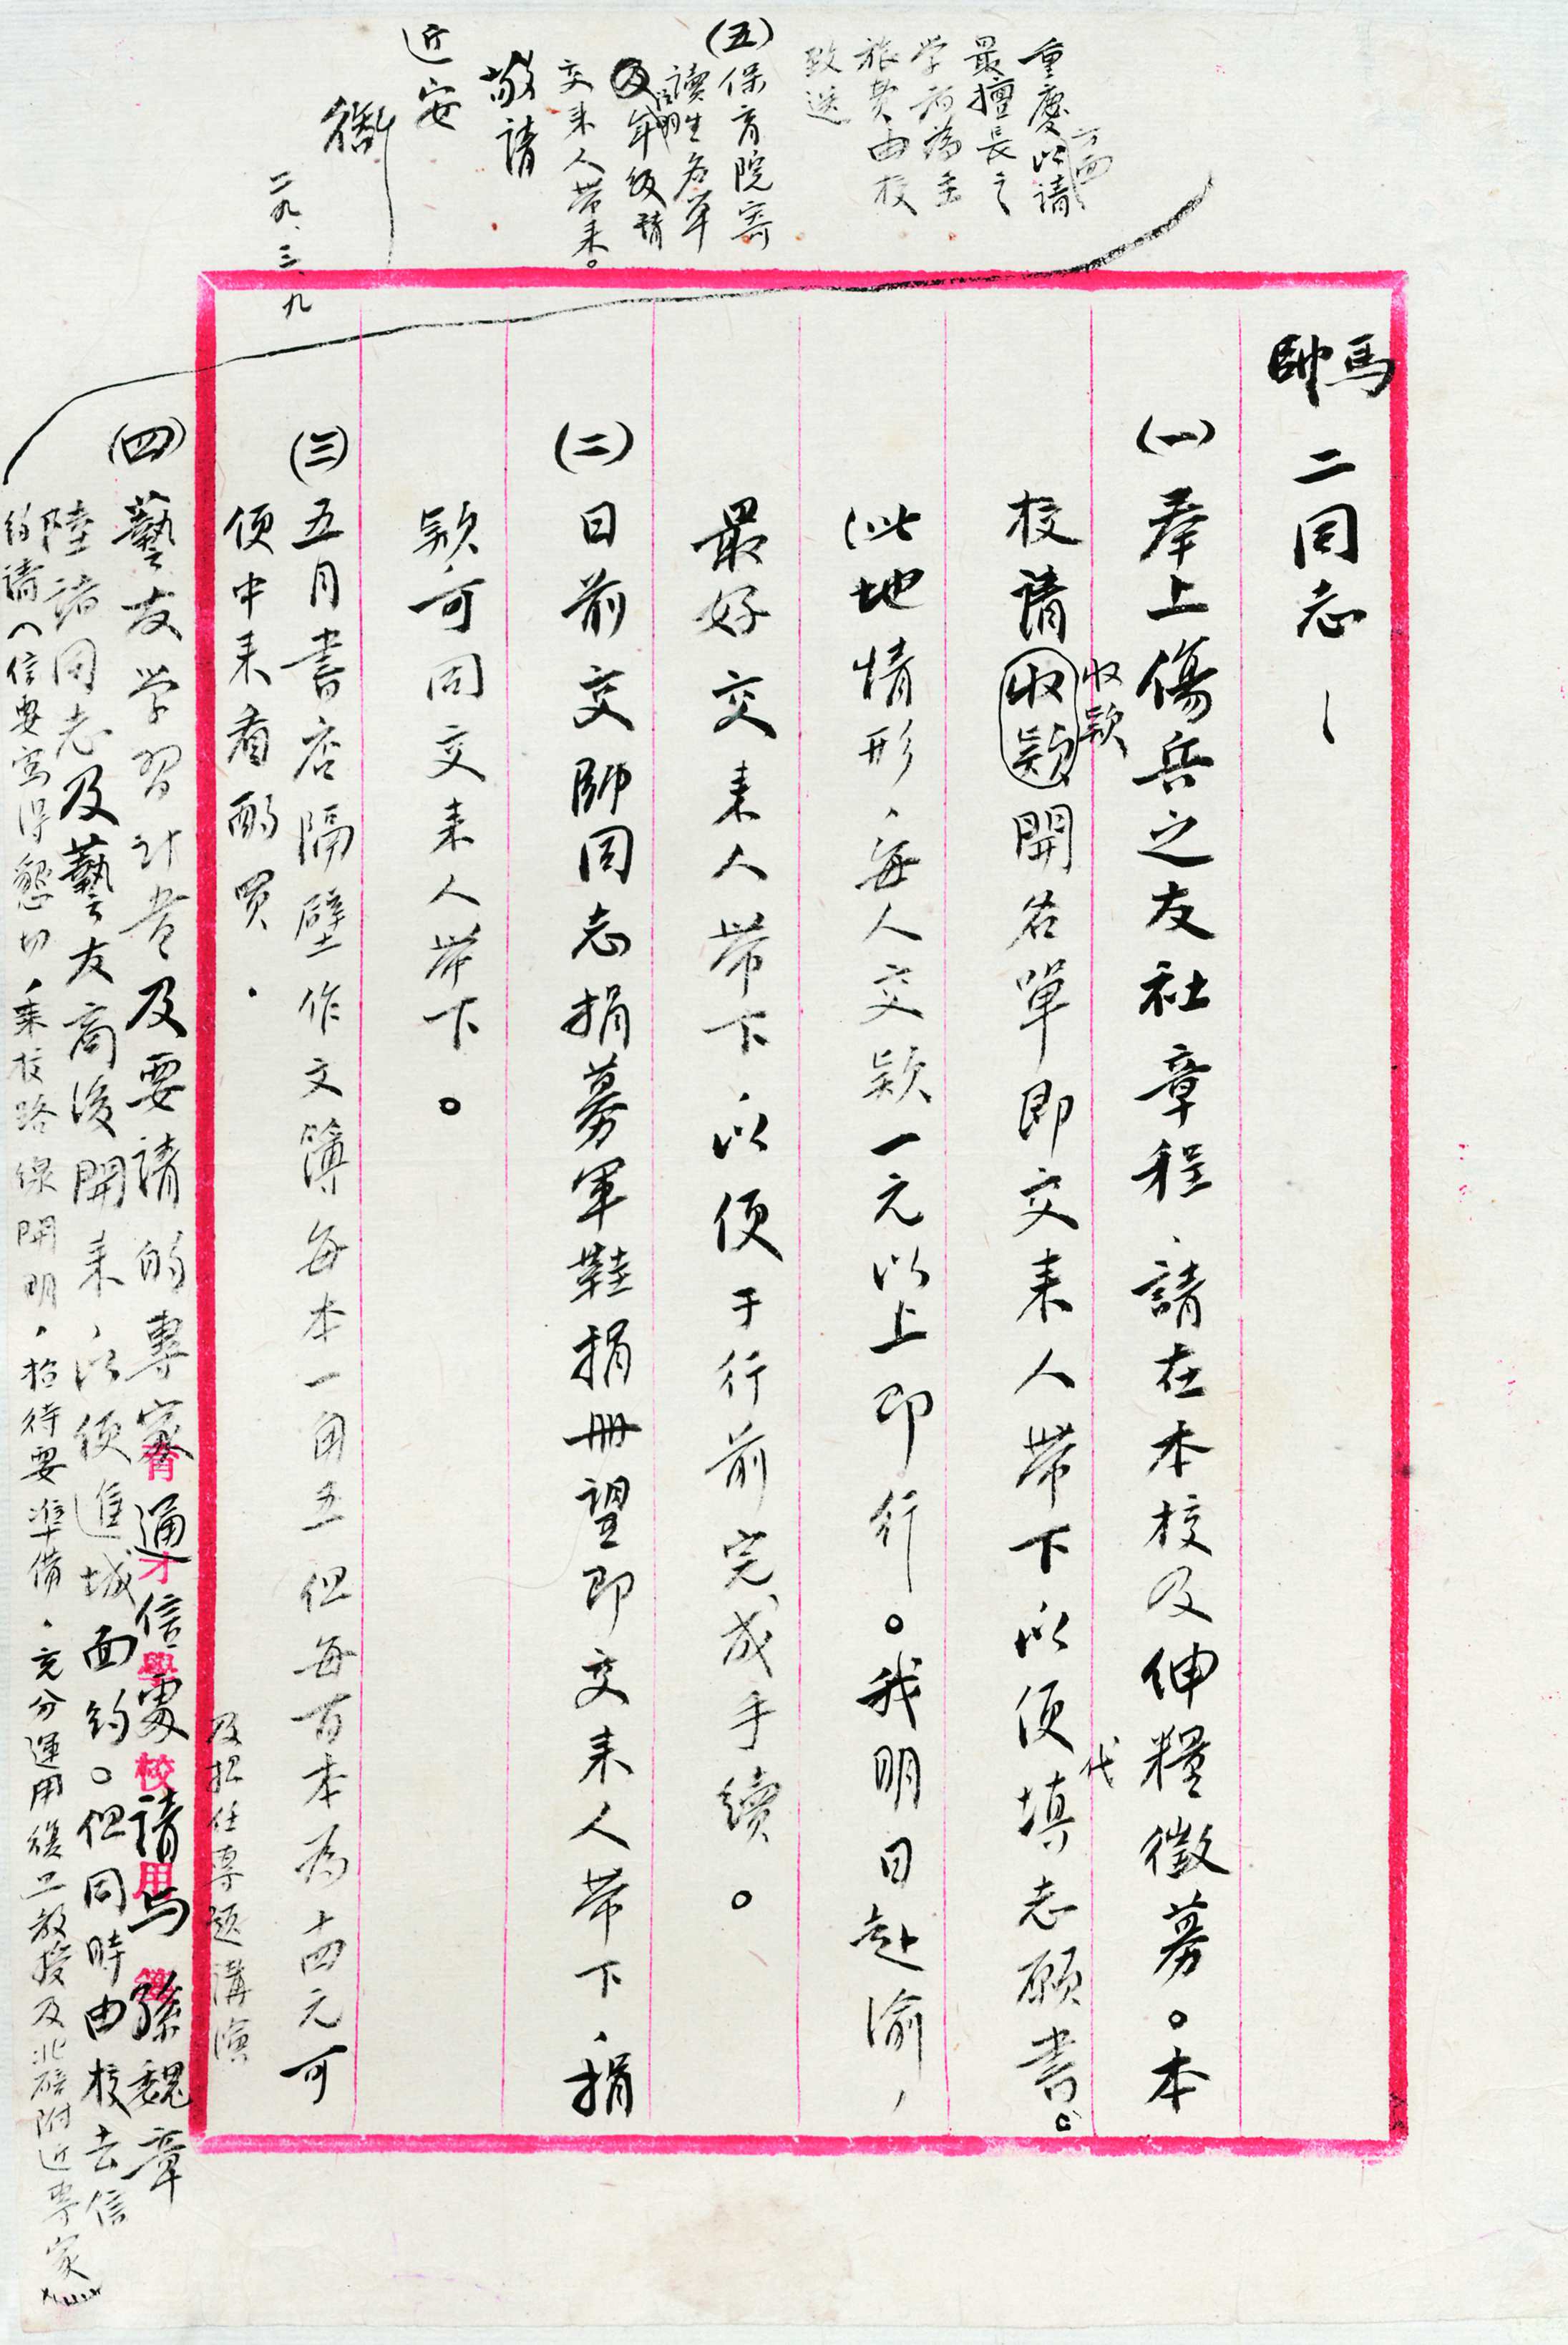 馬
帥
二同志：
(一)奉上傷兵之友社章程、請在本校及伸糧徵募。本
收款
校請收款開名單即交来人带下以便填志願書。
代
此地情形、每人交款一元以上即行。我明日赴渝，
最好交来人带下、以便于行前完成手續。
(二)日前交帥同志捐募軍鞋捐册望即交来人带下、捐
款可同交来人带下。
(三)五月書店隔壁作文簿每本一角五但每百本為十四元可
便中来看酌買.
及担任專題講演
(四)藝友学習計劃及要請的專家通信處請与孫魏章
陸諸同志及藝友商後開来、以便進城面約。但同時由校去信
約請（信要寫得懇切，来校路線開明，招待要準備、充分運用復旦教授及北碚附近專家
重慶以請
最擅長之
学者為主
旅費由校
致送
(五)保育院寄
讀生名單
及年級請
註明
交来人带来。
敬請
近安
衟
二九、三、九
育才學校用箋